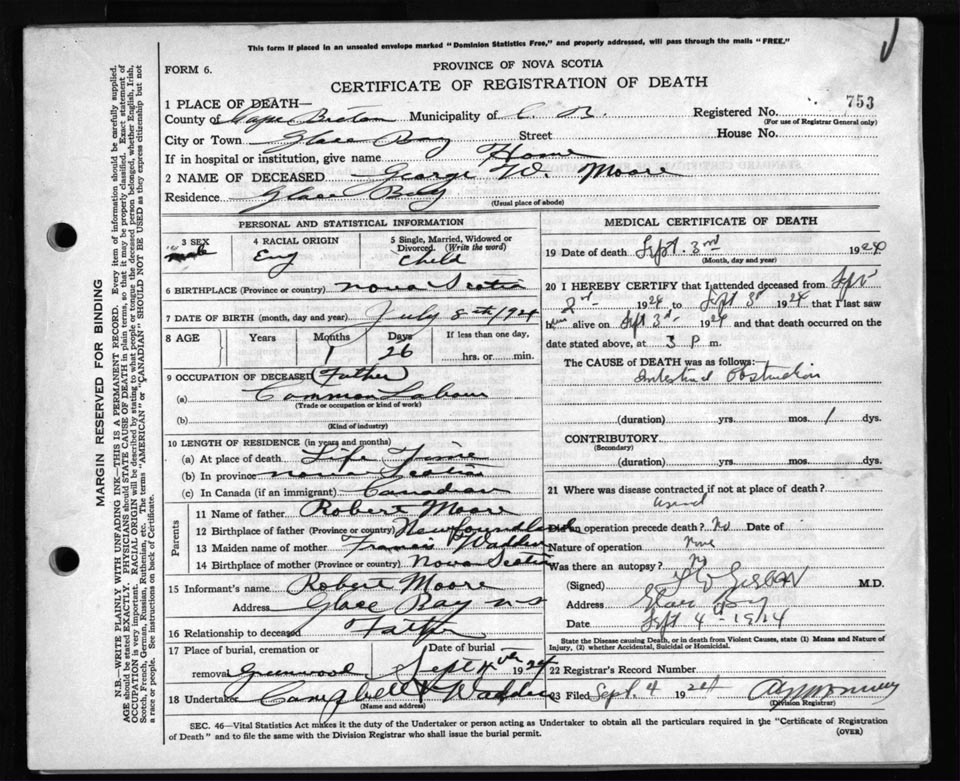 This form if placed in an unsealed envelope marked "Dominion Statistics Free," and properly addressed, will pass through the mails "FREE."
FORM 6.
PROVINCE OF NOVA SCOTIA
CERTIFICATE OF REGISTRATION OF DEATH
1 PLACE OF DEATH—
County of Cape Breton Municipality of C. B. Registered No. 753
(For use of Registrar General only)
City or Town Glace Bay Street House No.
If in hospital or institution, give name Home
2 NAME OF DECEASED George W. Moore
Residence Glace Bay
(Usual place of abode)
PERSONAL AND STATISTICAL INFORMATION
3 SEX 4 RACIAL ORIGIN 5 Single, Married, Widowed or Divorced. (Write the word)
male Eng Child
6 BIRTHPLACE (Province or country) Nova Scotia
7 DATE OF BIRTH (month, day and year) July 8th/1924
8 AGE Years Months Days If less than one day,
1 26 hrs. or min.
9 OCCUPATION OF DECEASED (Father)
(a) Common Labour
(Trade or occupation or kind of work)
(b)
(Kind of industry)
10 LENGTH OF RESIDENCE (in years and months)
(a) At place of death Life Time
(b) In province Nova Scotia
(c) In Canada (if an immigrant) Canadian
Parents
11 Name of father Robert Moore
12 Birthplace of father (Province or country) Newfoundland
13 Maiden name of mother Francis Wadden
14 Birthplace of mother (Province or country) Nova Scotia
15 Informant's name Robert Moore
Address Glace Bay NS
16 Relationship to deceased Father
17 Place of burial, cremation or removal Date of burial
Greenwood Sept 4th 1924
18 Undertaker Campbell & Wadden
(Name and address)
MEDICAL CERTIFICATE OF DEATH
19 Date of death Sept. 3rd 1924
(Month, day and year)
20 I HEREBY CERTIFY that I attended deceased from Spt
2nd 1924 to Sept 3d 1924 that I last saw
h alive on Spt 3rd 1924 and that death occurred on the
date stated above, at 3 P m.
The CAUSE of DEATH was as follows:
Intestinal Obstruction
(duration) yrs. mos. 1 dys.
CONTRIBUTORY
(Secondary)
(duration) yrs. mos. dys.
21 Where was disease contracted if not at place of death?
Did an operation precede death? No Date of
Nature of operation None
Was there an autopsy? No
(Signed) M.D.
Address Glace Bay
Date Sept 4th 1924
State the Disease causing Death, or in death from Violent Causes, state (1) Means and Nature of Injury, (2) whether Accidental, Suicidal or Homicidal.
22 Registrar's Record Number
23 Filed Sept. 4 1924
(Division Registrar)
SEC. 46—Vital Statistics Act makes it the duty of the Undertaker or person acting as Undertaker to obtain all the particulars required in the "Certificate of Registration
of Death" and to file the same with the Division Registrar who shall issue the burial permit. (OVER)
MARGIN RESERVED FOR BINDING
N.B.—WRITE PLAINLY WITH UNFADING INK—THIS IS A PERMANENT RECORD. Every item of information should be carefully supplied.
AGE should be stated EXACTLY. PHYSICIANS should STATE CAUSE OF DEATH in plain terms, so that it may be properly classified. Exact statement of
OCCUPATION is very important. RACIAL ORIGIN will be described by stating to what people or tongue the deceased person belonged, whether English, Irish,
Scotch, French, German, Russian, Ruthenian, etc. The terms "AMERICAN" or "CANADIAN" SHOULD NOT BE USED as they express citizenship but not
a race or people. See instructions on back of Certificate.